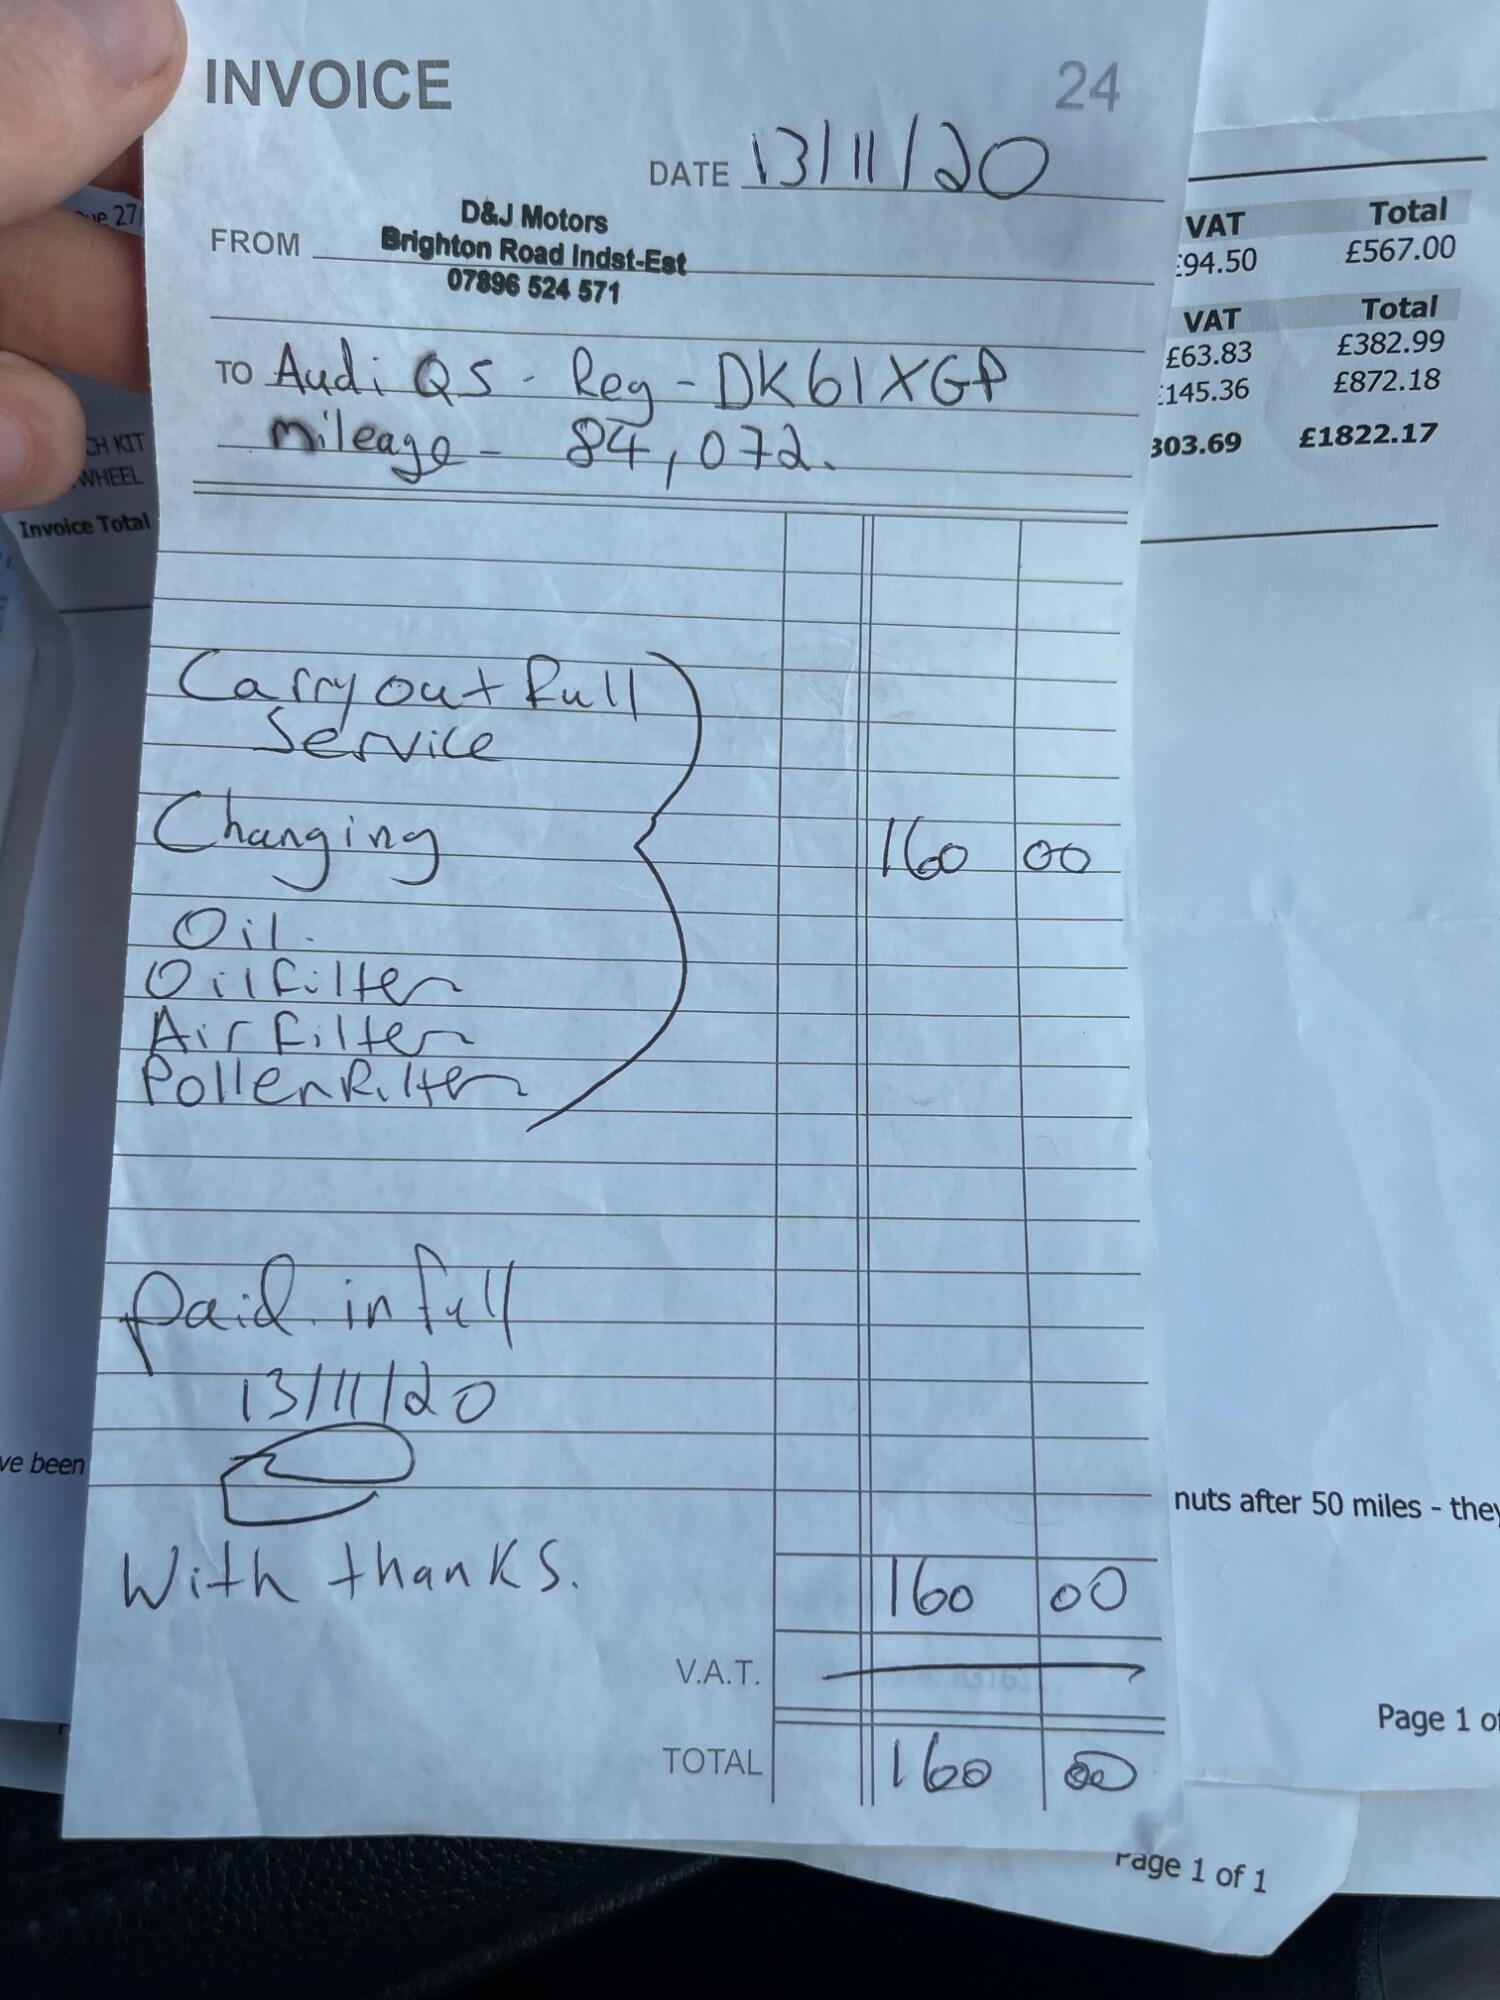 INVOICE
24
DATE 13/11/20
FROM
D&J Motors
Brighton Road Indst-Est
07896 524 571
TO Audi Q5 - Reg - DK61XGP
mileage - 84,072.
Carry out full
Service
Changing
160 00
Oil.
Oil filter
Air filter
Pollen filter
paid in full
13/11/20
With thanks.
160 00
V.A.T.
TOTAL 160 00
27/
CH KIT
WHEEL
Invoice Total
ve been
VAT Total
94.50 £567.00
VAT Total
£63.83 £382.99
145.36 £872.18
303.69 £1822.17
nuts after 50 miles - they
Page 1 of
Page 1 of 1